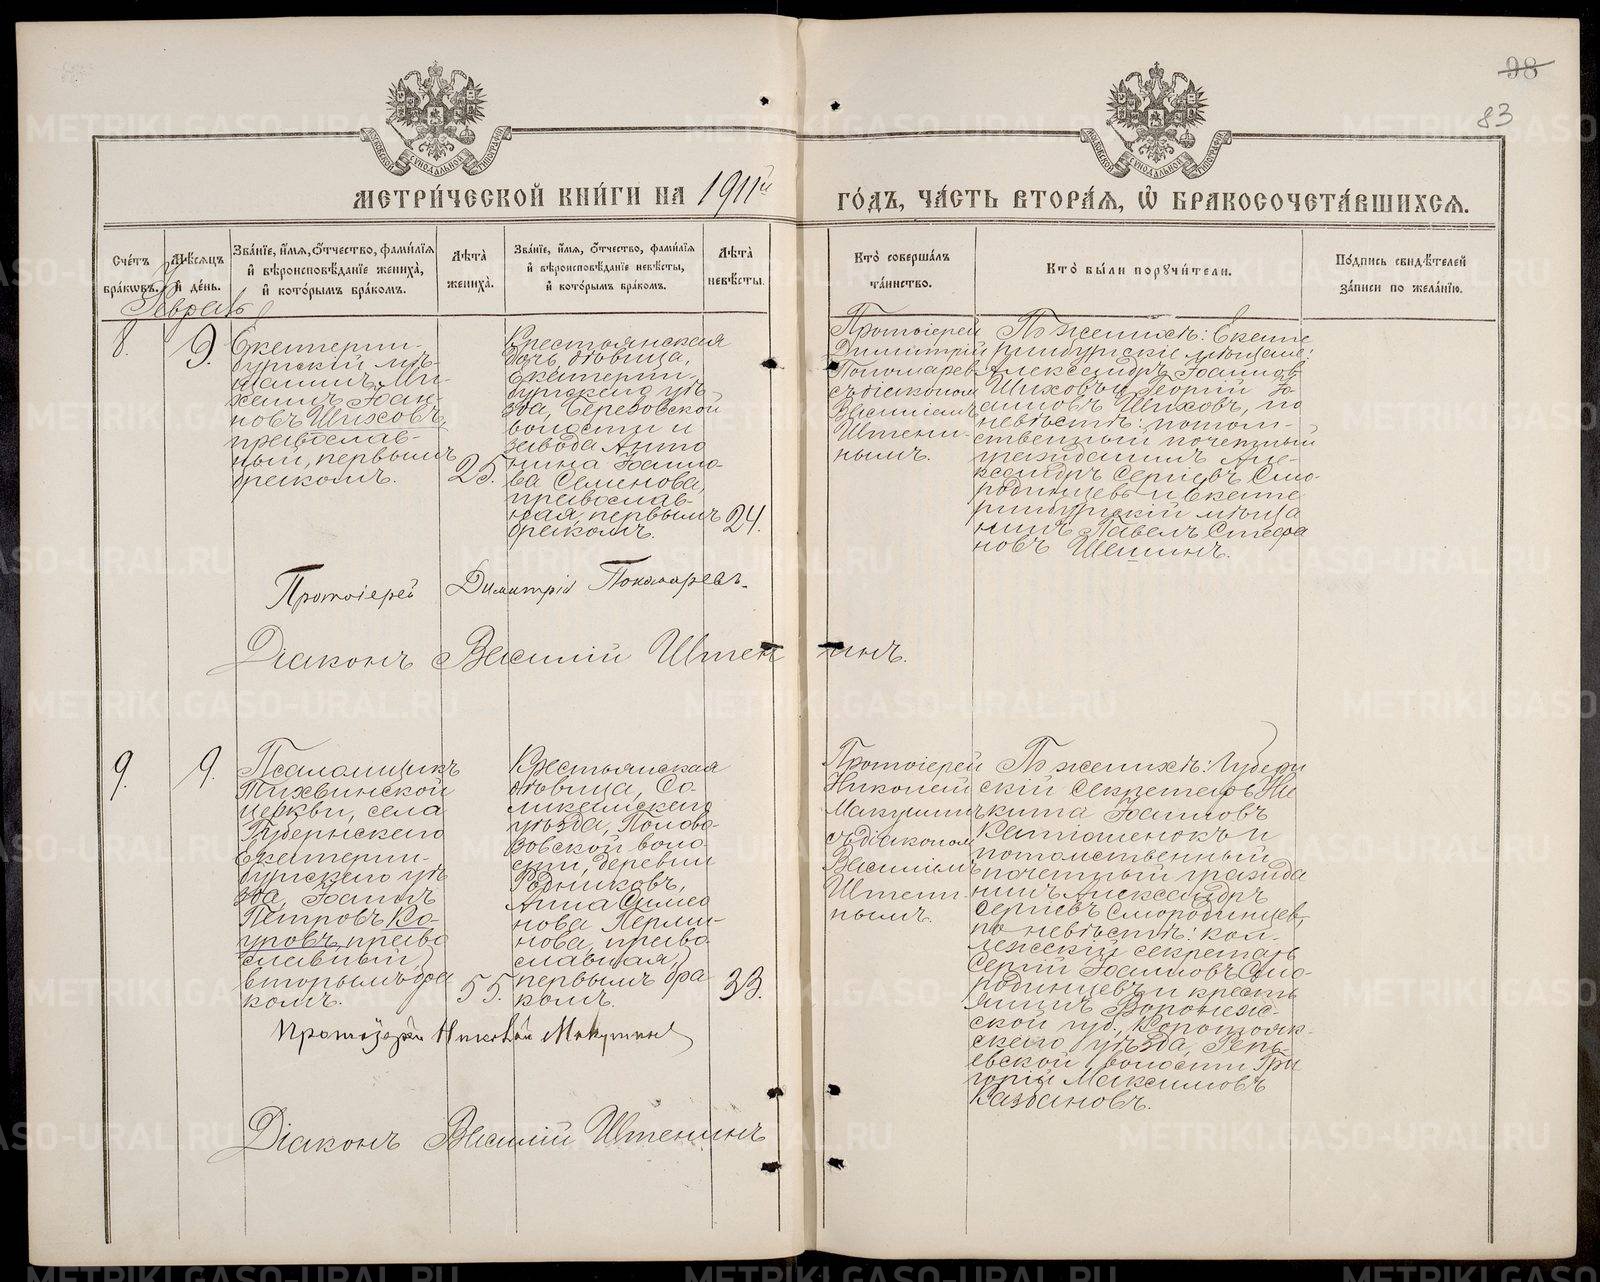 98
83
МЕТРИ́ЧЕСКОЙ КНИ́ГИ НА 1911й
ГО́ДЪ, ЧА́СТЬ ВТОРА́Я, Ѡ҆ БРАКОСОЧЕТА́ВШИХСЯ.
Сче́тъ бра́кѡвъ.
Мѣ́сяцъ и҆ де́нь.
Зва́нїе, и҆́мя, ѻ҆́тчество, фами́лїя и҆ вѣроисповѣ́данїе жениха̀, и҆ кото́рымъ бра́комъ.
Лѣ́та жениха̀.
Зва́нїе, и҆́мя, ѻ҆́тчество, фами́лїя и҆ вѣроисповѣ́данїе невѣ́сты, и҆ кото́рымъ бра́комъ.
Лѣ́та невѣ́сты.
Кто̀ соверша́лъ та́инство.
Кто̀ бы́ли порꙋчи́тели.
По́дпись свидѣ́телей за́писи по жела́нїю.
Февраль
8.
9.
Екатерин-
бургскій мѣ-
щанинъ Ми-
хаилъ Іоан-
новъ Шиховъ,
православ-
ный, первымъ
бракомъ.
25.
Крестьянская
дочь дѣвица,
Екатерин-
бургскаго уѣз-
зда, Березовской
волости и
завода Анто
нина Іоанно-
ва Семенова,
православ-
ная, первымъ
бракомъ.
24.
Протоіерей
Димитрій
Пономаревъ
съ діакономъ
Василіемъ
Штени-
нымъ.
По женихѣ: Екате
ринбургскіе мѣщане:
Александръ Іоаннов
Шиховъ и Георгій Іо-
анновъ Шиховъ, по
невѣстѣ: потом-
ственный почетный
гражданинъ Але-
ксандръ Сергіевъ Смо-
родинцевъ и Екате
ринбургскій мѣща
нинъ Павелъ Стефа
новъ Шешинъ.
Протоіерей Димитрій Пономаревъ.
Діаконъ Василій Штенинъ.
9.
9.
Псаломщикъ
Тихвинской
церкви, села
Губернскаго
Екатерин-
бургскаго уѣ
зда, Іоаннъ
Петровъ Ко-
уровъ, право
славный,
вторымъ бра
комъ.
55.
Крестьянская
дѣвица, Со-
ликамскаго
уѣзда, Полово-
довской воло
сти, деревни
Родниковъ,
Анна Симео
нова Перми-
нова, право-
славная,
первымъ бра
комъ.
33.
Протоіерей
Николай
Макушинъ
съ діакономъ
Василіемъ
Штени-
нымъ.
По женихѣ: Губерн
скій Секретарь Ни
кита Іоанновъ
Катюшенокъ и
потомственный
почетный гражда
нинъ Александръ
Сергіевъ Смородинцев,
по невѣстѣ: кол-
лежскій секретарь
Сергій Іоанновъ Смо-
родинцевъ и кресть
янинъ Воронеж-
ской губ., Коротояк-
скаго уѣзда, Репь-
евской волости Гри
горій Максимовъ
Казбановъ.
Протоіерей Николай Макушинъ
Діаконъ Василій Штенинъ
METRIKI.GASO-URAL.RU